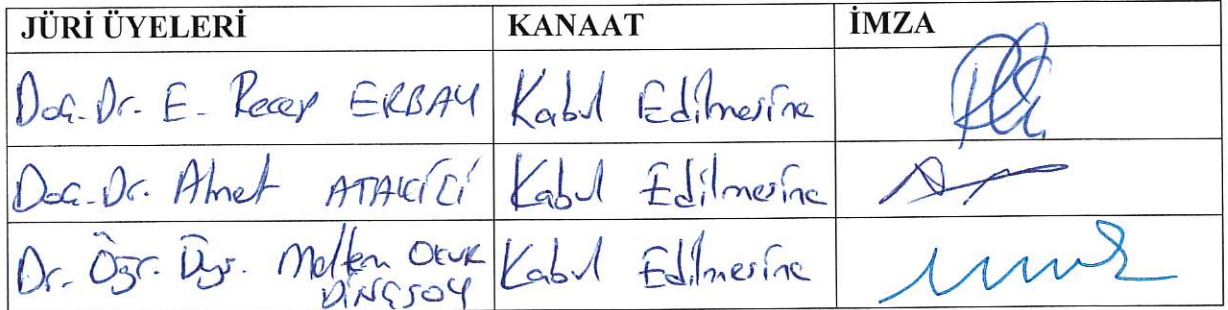 JÜRİ ÜYELERİ KANAAT İMZA
Doç. Dr. E. Recep ERBAY Kabul Edilmesine
Doç. Dr. Ahmet ATAKİŞİ Kabul Edilmesine
Dr. Öğr. Üys. Meltem OKUR Kabul Edilmesine
DİNÇSOY